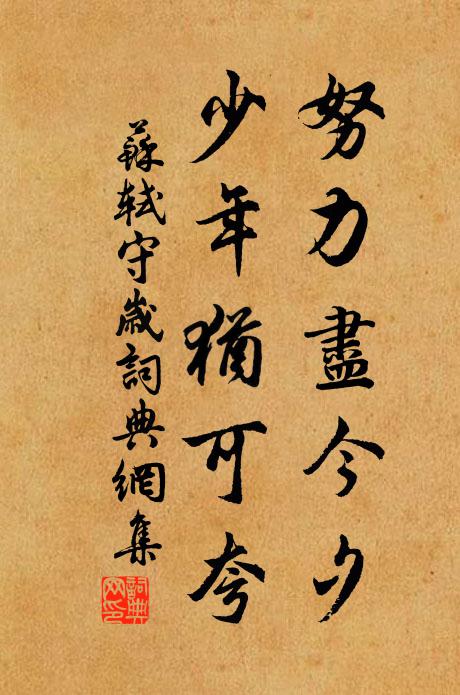 努力盡今夕
少年猶可夸
蘇軾守歲詞典網集
詞典網印